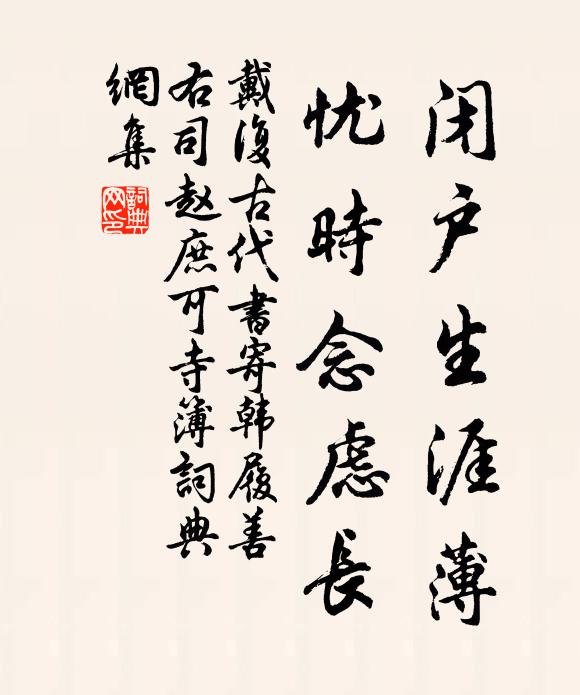 闭户生涯薄
忧時念虑長
戴復古代書寄韩履善
右司赵庶可寺簿詞典
網集
詞典網印